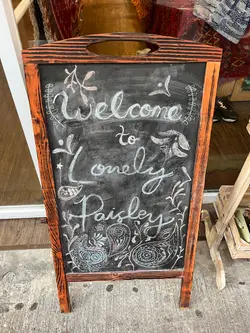 Welcome
to
Lonely
Paisley